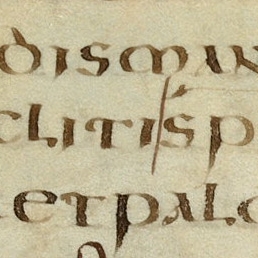 dismin
clitisp
etpalo